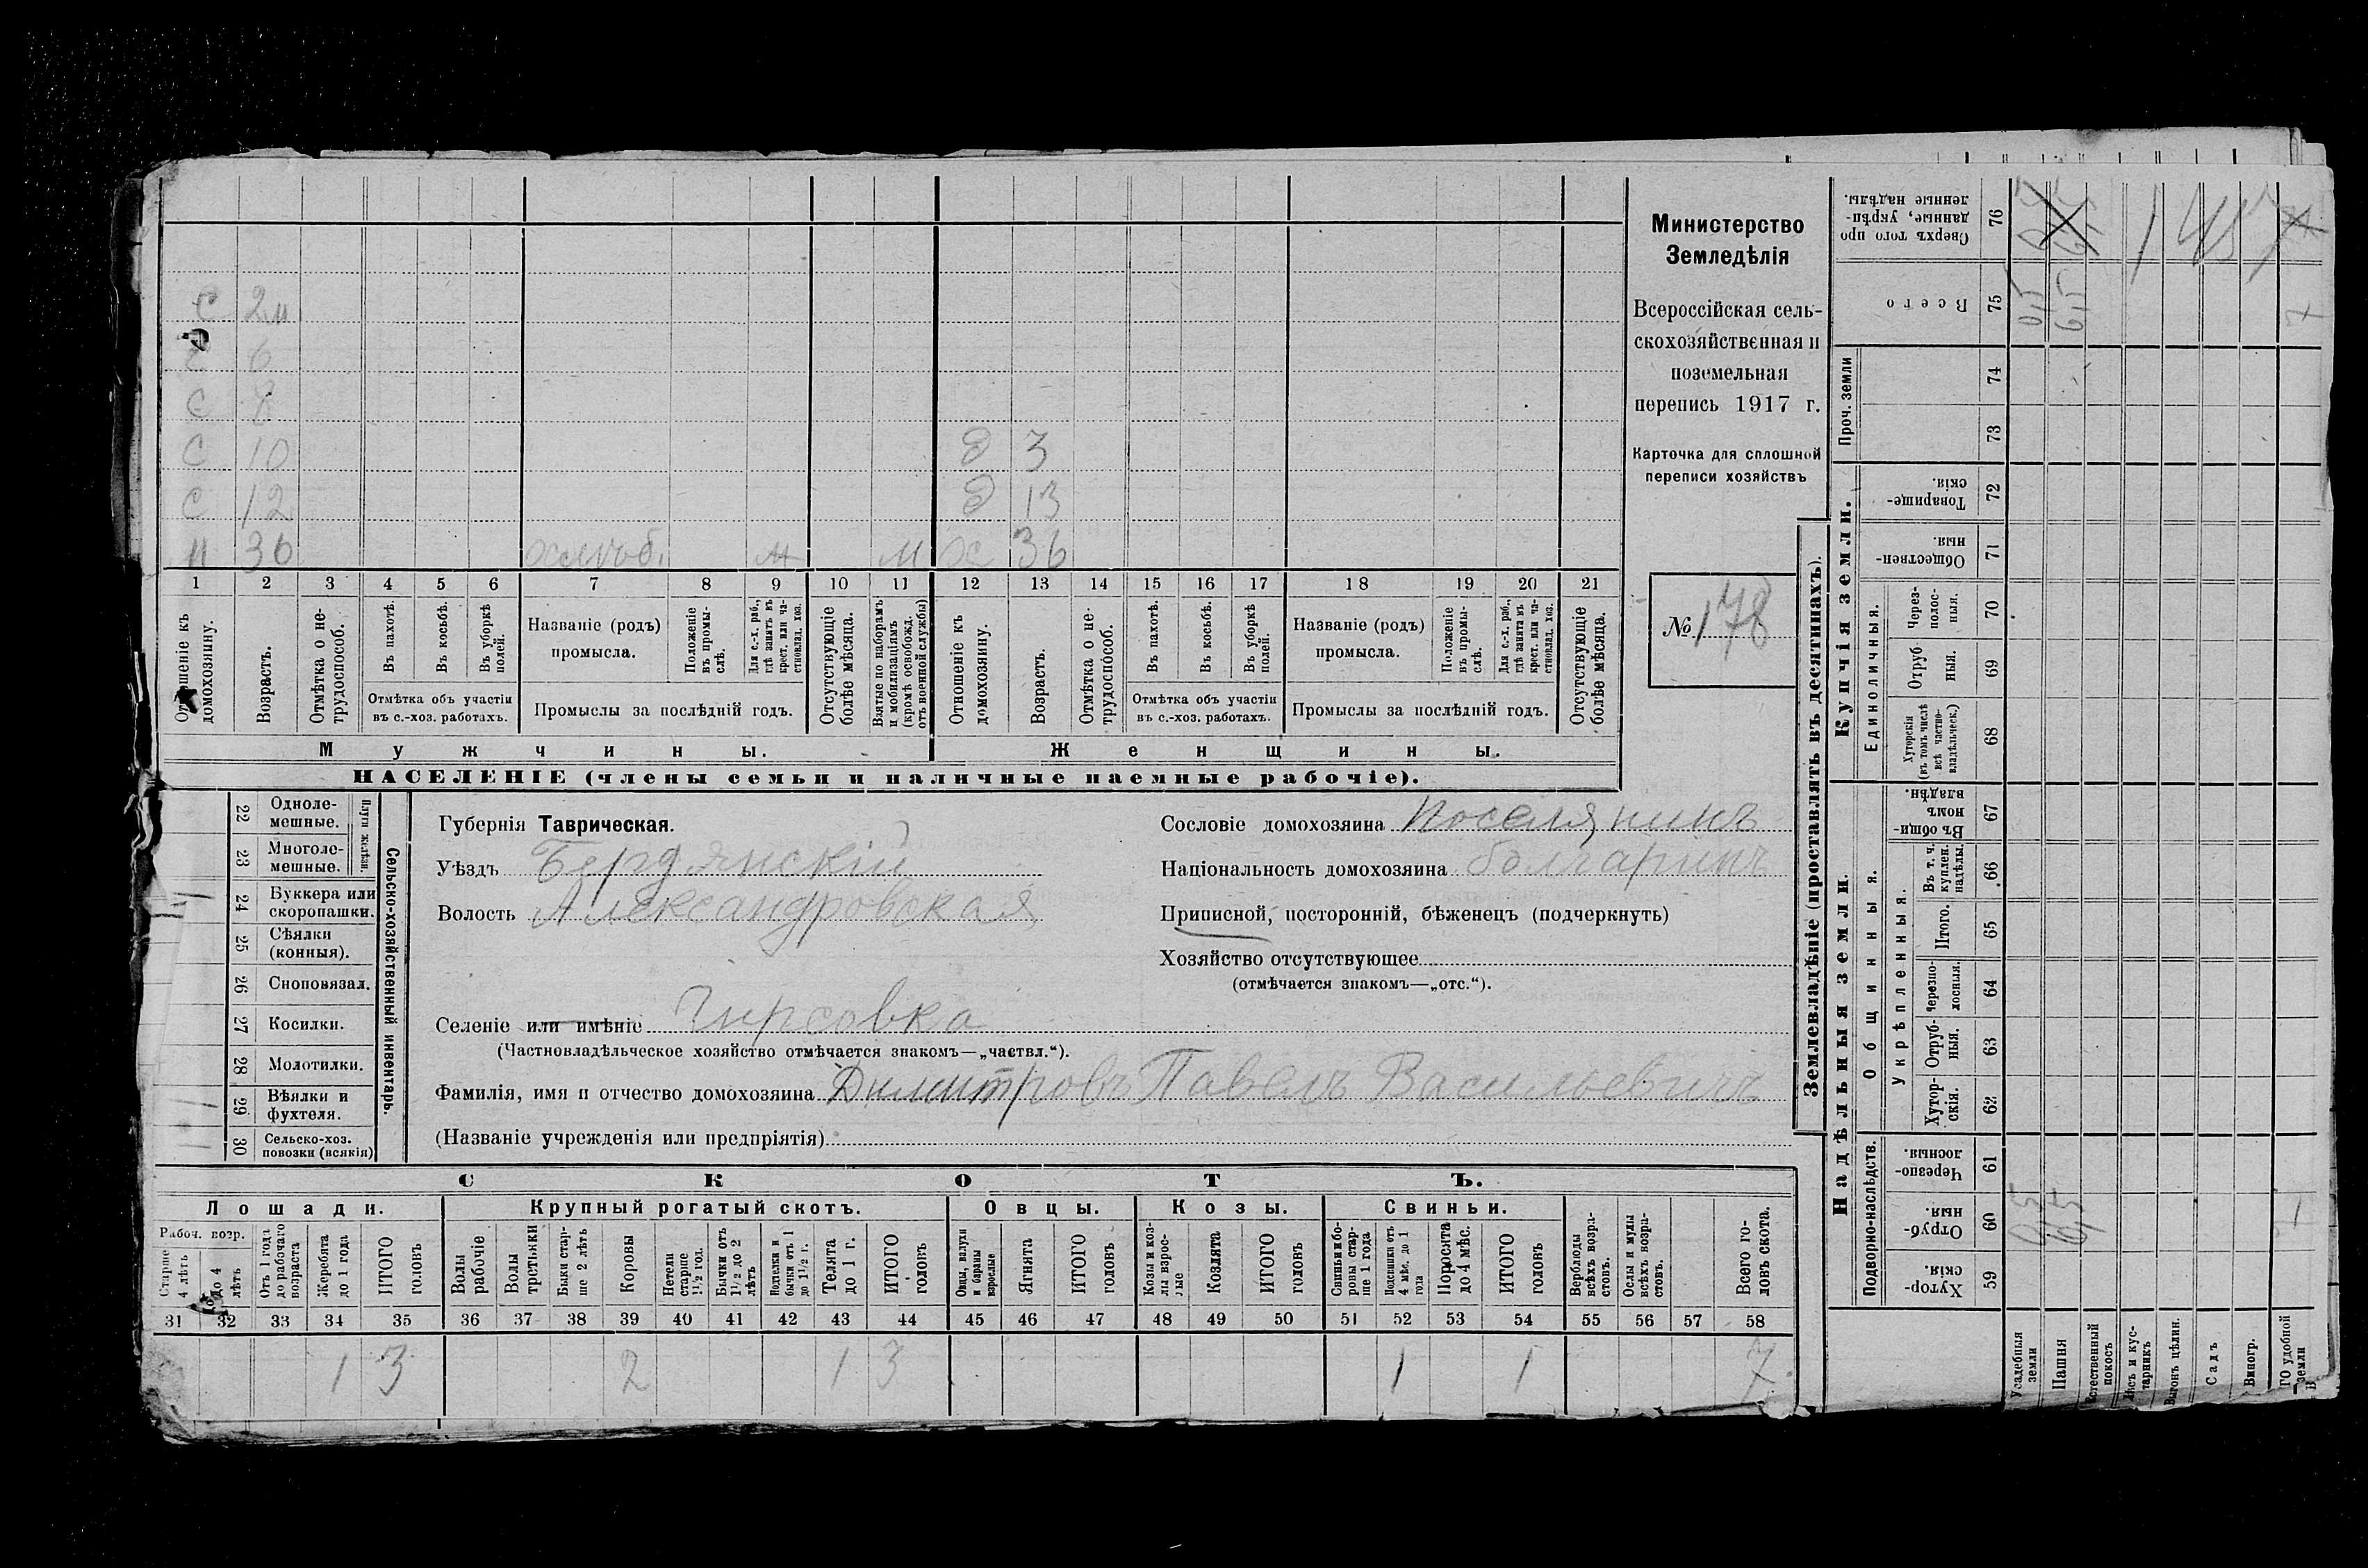 С 2 м
С 6
С 8
С 10 Д 3
С 12 Д 13
М 36 хлѣб. М Ж 36
1 2 3 4 5 6 7 8 9 10 11 12 13 14 15 16 17 18 19 20 21
Отношеніе къ домохозяину.
Возрастъ.
Отмѣтка о нетрудоспособ.
Въ пахотѣ.
Въ косьбѣ.
Въ уборкѣ полей.
Отмѣтка объ участіи
въ с.-хоз. работахъ.
Названіе (родъ)
промысла.
Положеніе въ промыслѣ.
Для с.-х. раб., гдѣ занятъ въ крест. или частновлад. хоз.
Промыслы за послѣдній годъ.
Отсутствующіе болѣе мѣсяца.
Взятые по наборамъ и мобилизаціямъ (кромѣ освобожд. отъ военной службы)
Отношеніе къ домохозяину.
Возрастъ.
Отмѣтка о нетрудоспособ.
Въ пахотѣ.
Въ косьбѣ.
Въ уборкѣ полей.
Отмѣтка объ участіи
въ с.-хоз. работахъ.
Названіе (родъ)
промысла.
Положеніе въ промыслѣ.
Для с.-х. раб., гдѣ занята въ крест. или частновлад. хоз.
Промыслы за послѣдній годъ.
Отсутствующіе болѣе мѣсяца.
Мужчины. Женщины.
НАСЕЛЕНІЕ (члены семьи и наличные наемные рабочіе).
Министерство
Земледѣлія
Всероссійская сель-
скохозяйственная и
поземельная
перепись 1917 г.
Карточка для сплошной
переписи хозяйствъ
№ 178
Сельско-хозяйственный инвентарь.
Плуги желѣзн.
22 Одноле-
мешные.
23 Многоле-
мешные.
24 Буккера или
скоропашки.
25 Сѣялки
(конныя).
26 Сноповязал.
27 Косилки.
28 Молотилки.
29 Вѣялки и
фухтеля.
30 Сельско-хоз.
повозки (всякія)
Губернія Таврическая.
Уѣздъ Бердянскій
Волость Александровская
Селеніе или имѣніе Гирсовка
(Частновладѣльческое хозяйство отмѣчается знакомъ—„частвл.“).
Фамилія, имя и отчество домохозяина Димитровъ Павелъ Васильевичъ
(Названіе учрежденія или предпріятія)
Сословіе домохозяина Поселянинъ
Національность домохозяина болгаринъ
Приписной, посторонній, бѣженецъ (подчеркнуть)
Хозяйство отсутствующее
(отмѣчается знакомъ—„отс.“).
СКОТЪ.
Лошади. Крупный рогатый скотъ. Овцы. Козы. Свиньи.
Рабоч. возр.
Старше 4 лѣтъ
до 4 лѣтъ
Отъ 1 года до рабочаго возраста
Жеребята до 1 года
ИТОГО головъ
Волы рабочіе
Волы третьяки
Быки старше 2 лѣтъ
Коровы
Нетели старше 1½ год.
Бычки отъ 1½ до 2 лѣтъ
Подтелки и бычки отъ 1 до 1½ г.
Телята до 1 г.
ИТОГО головъ
Овцы, валухи и бараны взрослые
Ягнята
ИТОГО головъ
Козы и козлы взрослые
Козлята
ИТОГО головъ
Свиньи и боровы старше 1 года
Подсвинки отъ 4 мѣс. до 1 года
Поросята до 4 мѣс.
ИТОГО головъ
Верблюды всѣхъ возрастовъ.
Ослы и мулы всѣхъ возрастовъ.
Всего головъ скота.
31 32 33 34 35 36 37 38 39 40 41 42 43 44 45 46 47 48 49 50 51 52 53 54 55 56 57 58
1 3 2 1 3 1 1 7
Землевладѣніе (проставлять въ десятинахъ).
Надѣльныя земли. Купчія земли.
Подворно-наслѣдств.
Общинныя.
Укрѣпленныя.
Единоличныя.
Проч. земли
Сверхъ того проданные, укрѣпленные надѣлы. 76
Всего 75
74
73
Товарищескія. 72
Общественныя. 71
Черезполосныя. 70
Отрубныя. 69
Хуторскія (въ томъ числѣ всѣ частновладѣльческ.) 68
Въ общиномъ владѣн. 67
Въ т. ч. куплен. надѣлы. 66
Итого. 65
Черезполосныя. 64
Отрубныя. 63
Хуторскія. 62
Черезполосныя. 61
Отрубныя. 60
Хуторскія. 59
Усадебныя земли
Пашня
Естественный покосъ
Лѣсъ и кустарникъ
Выгонъ цѣлин.
Садъ
Виногр.
ГО удобной земли
0,5 6,5 7
0,5 6,5